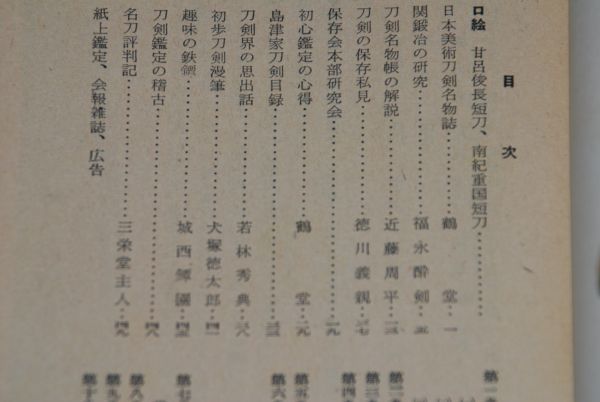 目次
口絵 甘呂俊長短刀、南紀重国短刀
日本美術刀剣名物誌 鶴堂 一
関鍛冶の研究 福永酔剣 五
刀剣名物帳の解説 近藤周平 一三
刀剣の保存私見 徳川義親 一七
保存会本部研究会 一九
初心鑑定の心得 鶴堂 二九
島津家刀剣目録 三三
刀剣界の思出話 若林秀典 三八
初歩刀剣漫筆 犬塚徳太郎 四一
趣味の鉄鐔 城西鐔園 四五
刀剣鑑定の稽古 四八
名刀評判記 三栄堂主人 四九
紙上鑑定、会報雑誌、広告